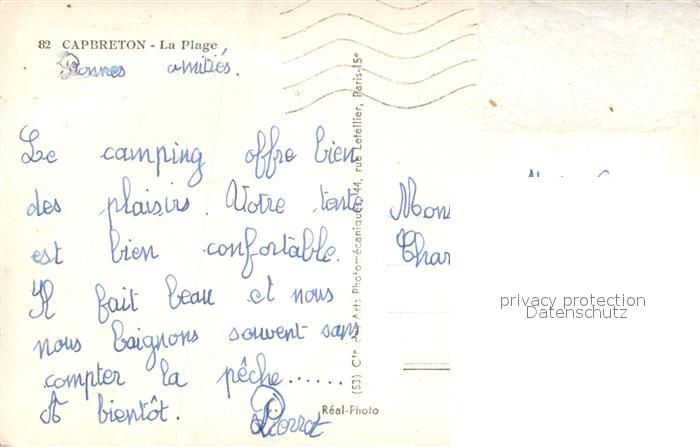 82 CAPBRETON - La Plage
Bonnes amitiés.
Le camping offre bien
des plaisirs. Votre tente
est bien confortable.
Il fait beau et nous
nous baignons souvent sans
compter la pêche......
A bientôt. Pierrot
(53) Cie des Arts Photomécaniques, 44, rue Letellier, Paris-15e
Réal-Photo
Mons
Char
privacy protection
Datenschutz